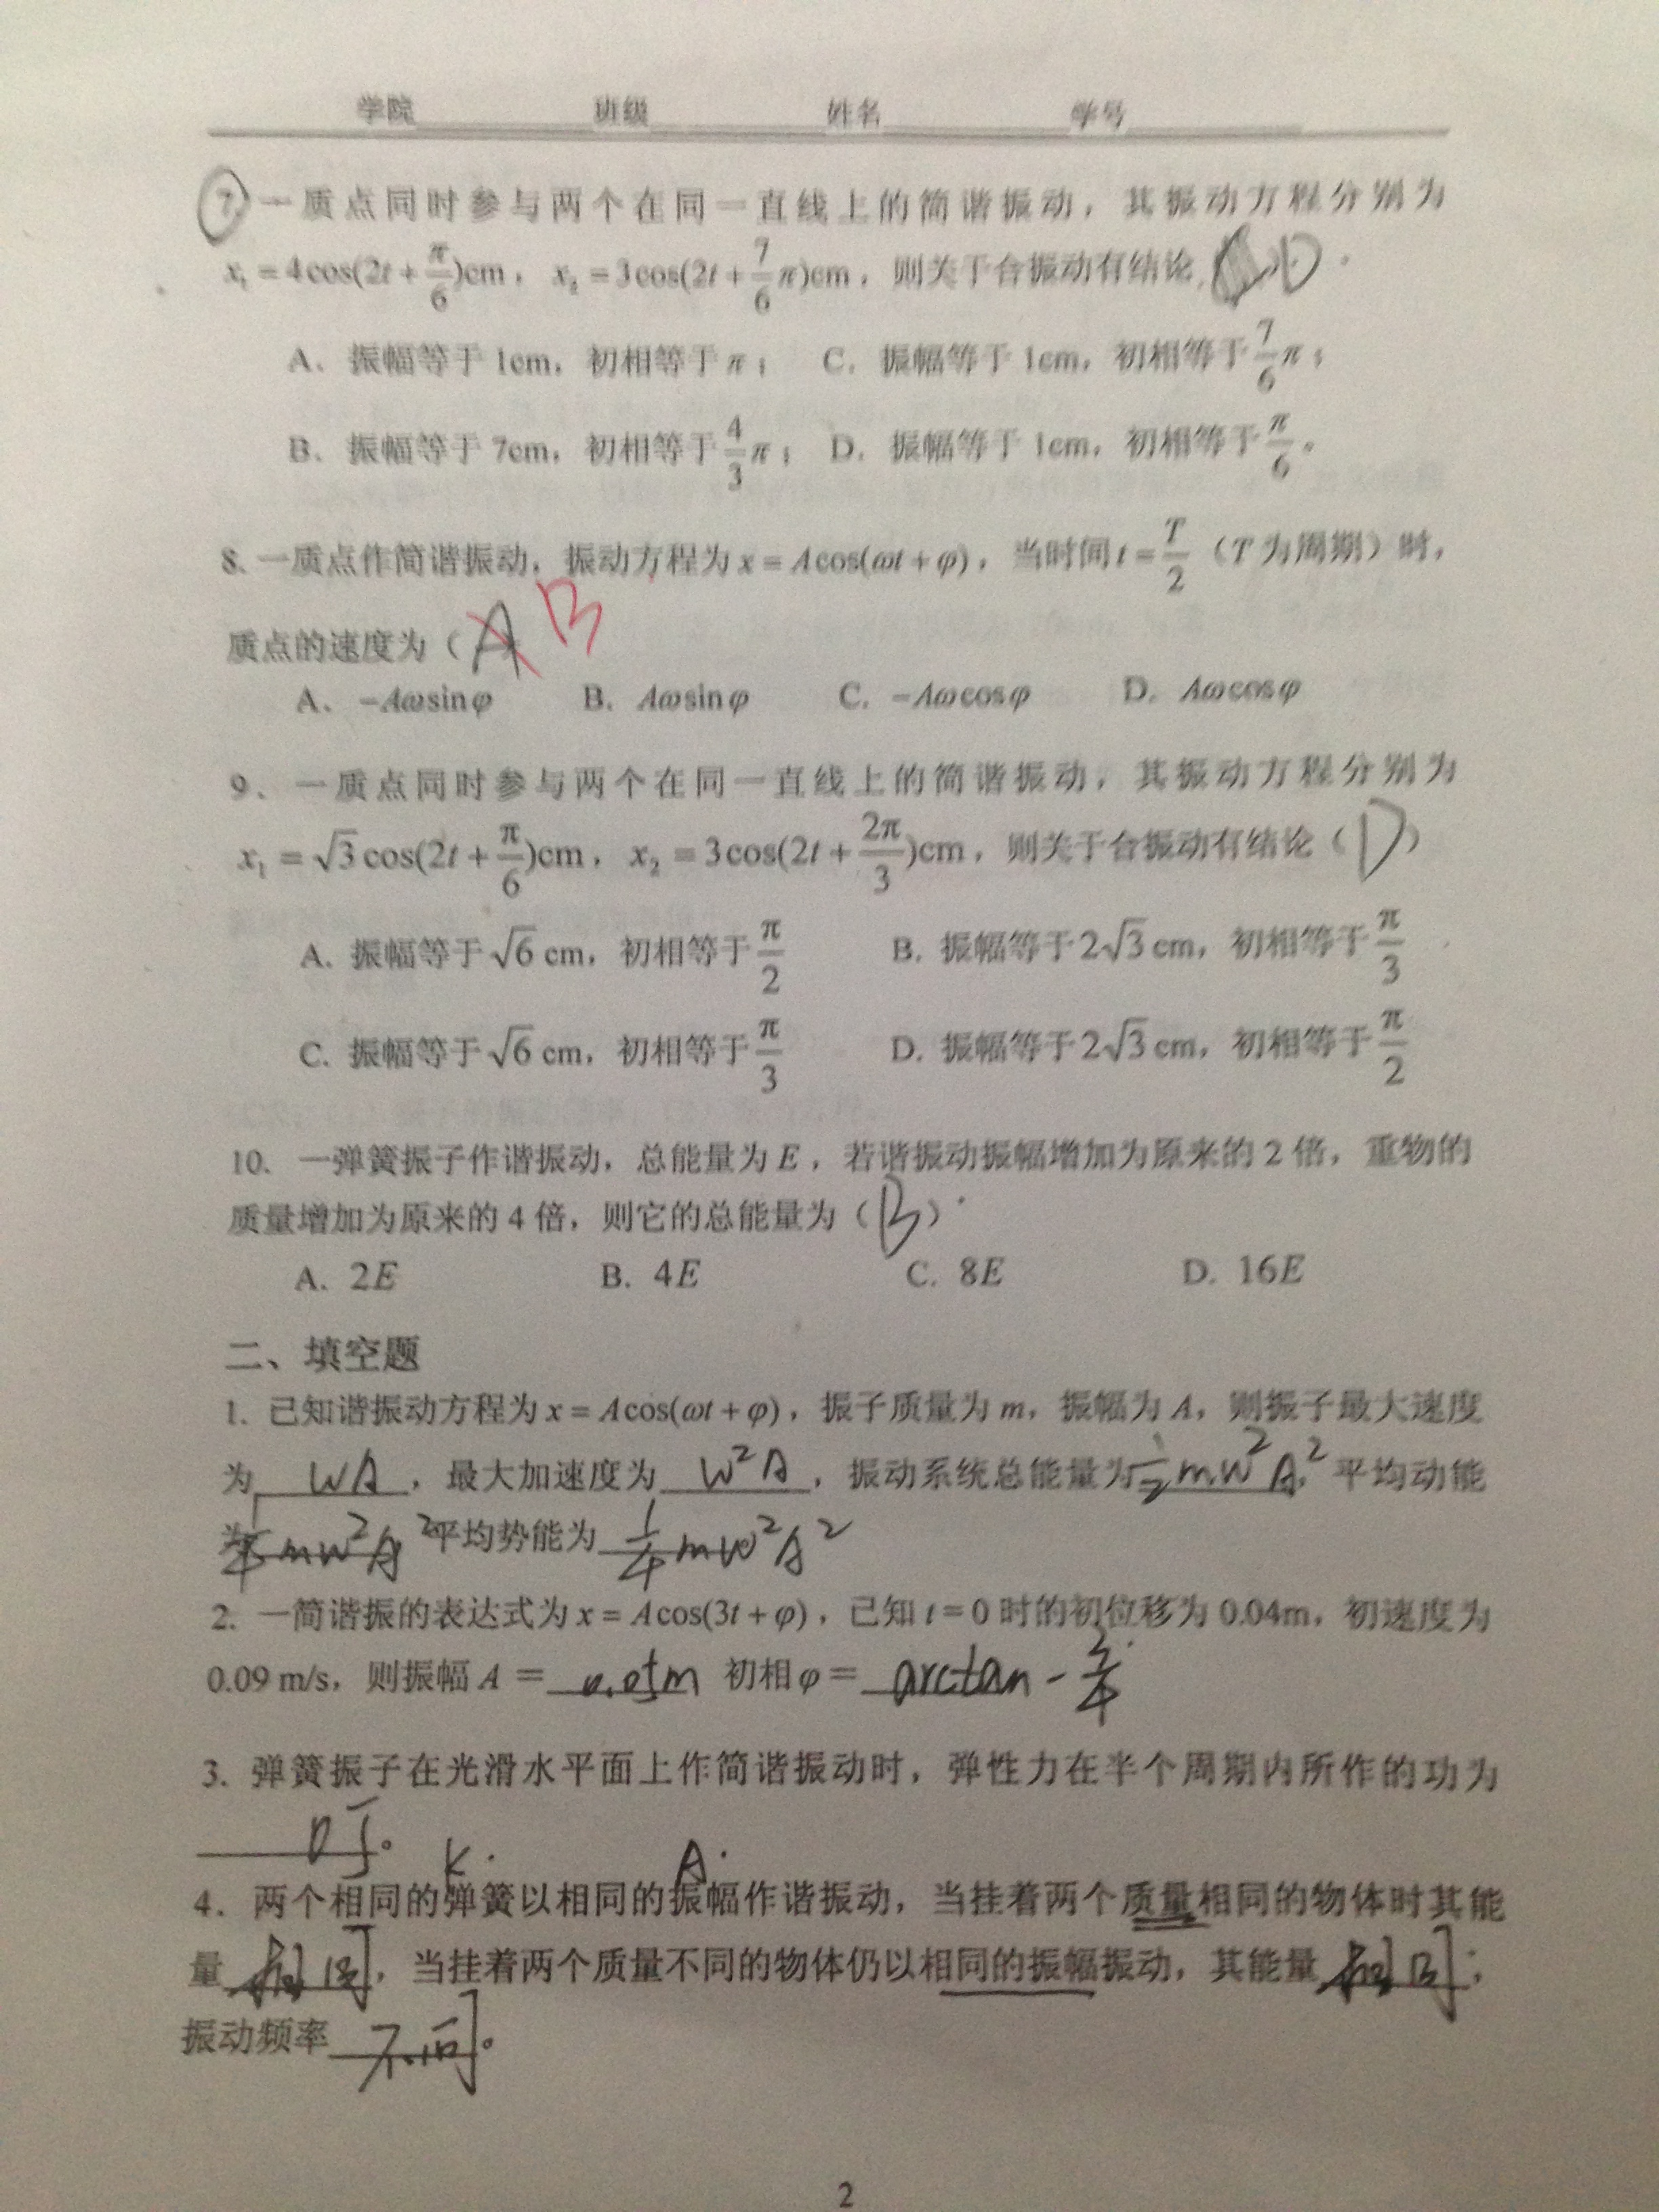 学院 班级 姓名 学号
7. 一质点同时参与两个在同一直线上的简谐振动，其振动方程分别为
x₁ = 4cos(2t + π/6)cm，x₂ = 3cos(2t + 7/6 π)cm，则关于合振动有结论 ( ) D
A. 振幅等于 1cm，初相等于 π； C. 振幅等于 1cm，初相等于 7/6 π；
B. 振幅等于 7cm，初相等于 4/3 π； D. 振幅等于 1cm，初相等于 π/6。
8. 一质点作简谐振动，振动方程为 x = Acos(ωt + φ)，当时间 t = T/2（T 为周期）时，
质点的速度为（ A B
A. −Aωsinφ B. Aωsinφ C. −Aωcosφ D. Aωcosφ
9. 一质点同时参与两个在同一直线上的简谐振动，其振动方程分别为
x₁ = √3 cos(2t + π/6)cm，x₂ = 3cos(2t + 2π/3)cm，则关于合振动有结论（D）
A. 振幅等于 √6 cm，初相等于 π/2 B. 振幅等于 2√3 cm，初相等于 π/3
C. 振幅等于 √6 cm，初相等于 π/3 D. 振幅等于 2√3 cm，初相等于 π/2
10. 一弹簧振子作谐振动，总能量为 E，若谐振动振幅增加为原来的 2 倍，重物的
质量增加为原来的 4 倍，则它的总能量为（B）
A. 2E B. 4E C. 8E D. 16E
二、填空题
1. 已知谐振动方程为 x = Acos(ωt + φ)，振子质量为 m，振幅为 A，则振子最大速度
为 wA，最大加速度为 w²A，振动系统总能量为 1/2 mw²A²，平均动能
为 1/4 mw²A² 平均势能为 1/4 mw²A²
2. 一简谐振的表达式为 x = Acos(3t + φ)，已知 t = 0 时的初位移为 0.04m，初速度为
0.09 m/s，则振幅 A = 0.05m 初相 φ = arctan - 3/4
3. 弹簧振子在光滑水平面上作简谐振动时，弹性力在半个周期内所作的功为
0J。 K. A.
4. 两个相同的弹簧以相同的振幅作谐振动，当挂着两个质量相同的物体时其能
量 相同，当挂着两个质量不同的物体仍以相同的振幅振动，其能量 相同；
振动频率 不同。
2